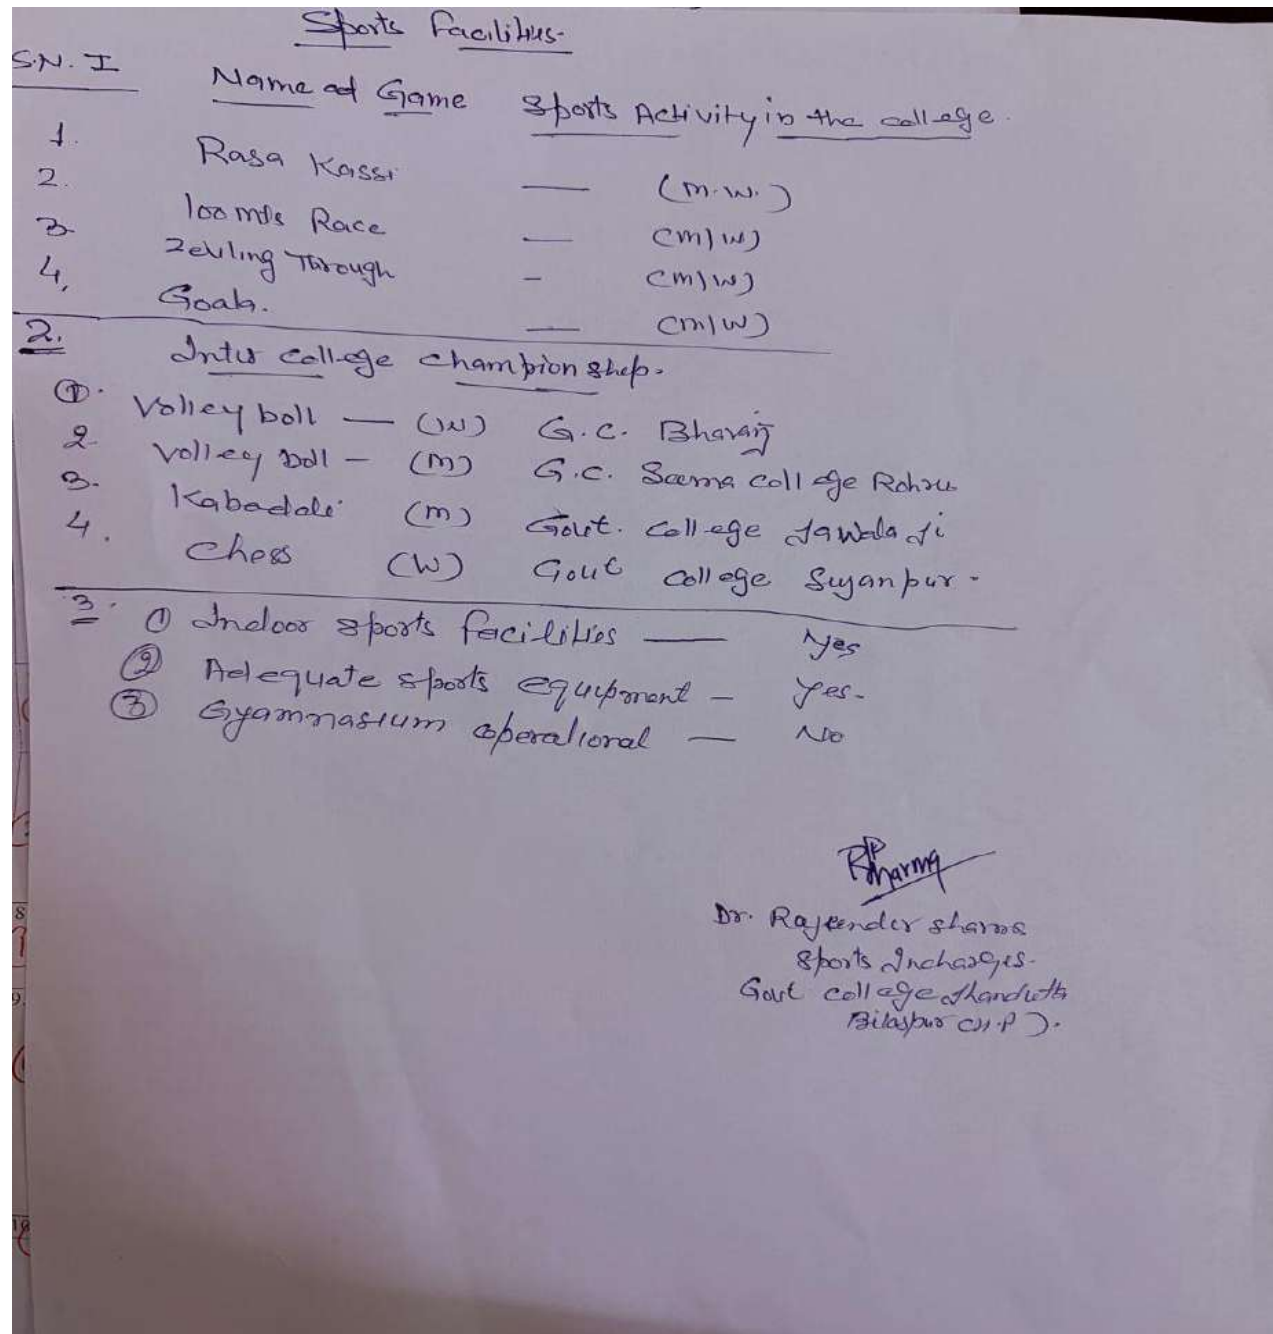 Sports Facilities-
S.N. I Name of Game Sports Activity in the college.
1. Rasa Kassi — (M.W.)
2. 100 mts Race — (M/W)
3. Through - (M/W)
4. Goals. — (M/W)
2. Inter College Championship.
①. Volley boll — (W) G.C. Bharanj
2. Volley boll — (M) G.C. Seema college Rohru
3. Kabaddi (M) Govt. College Jawala Ji
4. Chess (W) Govt College Sujanpur-
3. ① Indoor sports facilities — Yes
② Adequate sports equipment — Yes-
③ Gyamnasium operational — No
RPSharma
Dr. Rajeender Sharma
Sports Incharges.
Govt College Jhandutta
Bilaspur (H.P).